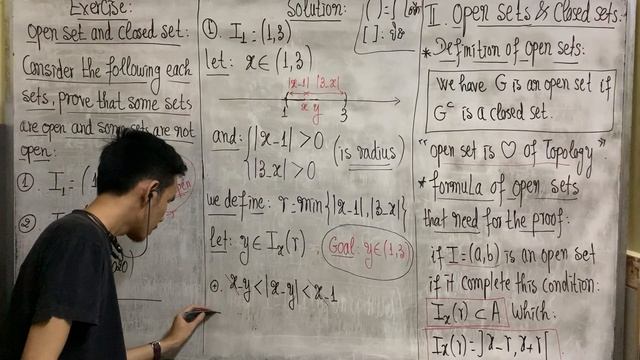 Exercise:
Open set and closed set:
Consider the following each
sets, prove that some sets
are open and some sets are not
open:
①. I₁ = (1
②
Solution:
①. I₁ = (1,3)
let: x ∈ (1,3)
|x-1| |3-x|
1 x y 3
and: { |x-1| > 0
|3-x| > 0 (is radius)
we define: r = min{|x-1|, |3-x|}
let: y ∈ Iₓ(r) Goal: y ∈ (1,3)
x-y < |x-y| < x-1
II. Open sets & Closed sets.
* Definition of open sets:
we have G is an open set if
Gᶜ is a closed set.
"open set is ♡ of Topology".
* formula of open sets
that need for the proof:
if I = (a,b) is an open set
if it complete this condition:
Iₓ(r) ⊂ A Which:
Iₓ(r) = ]x-r, x+r[